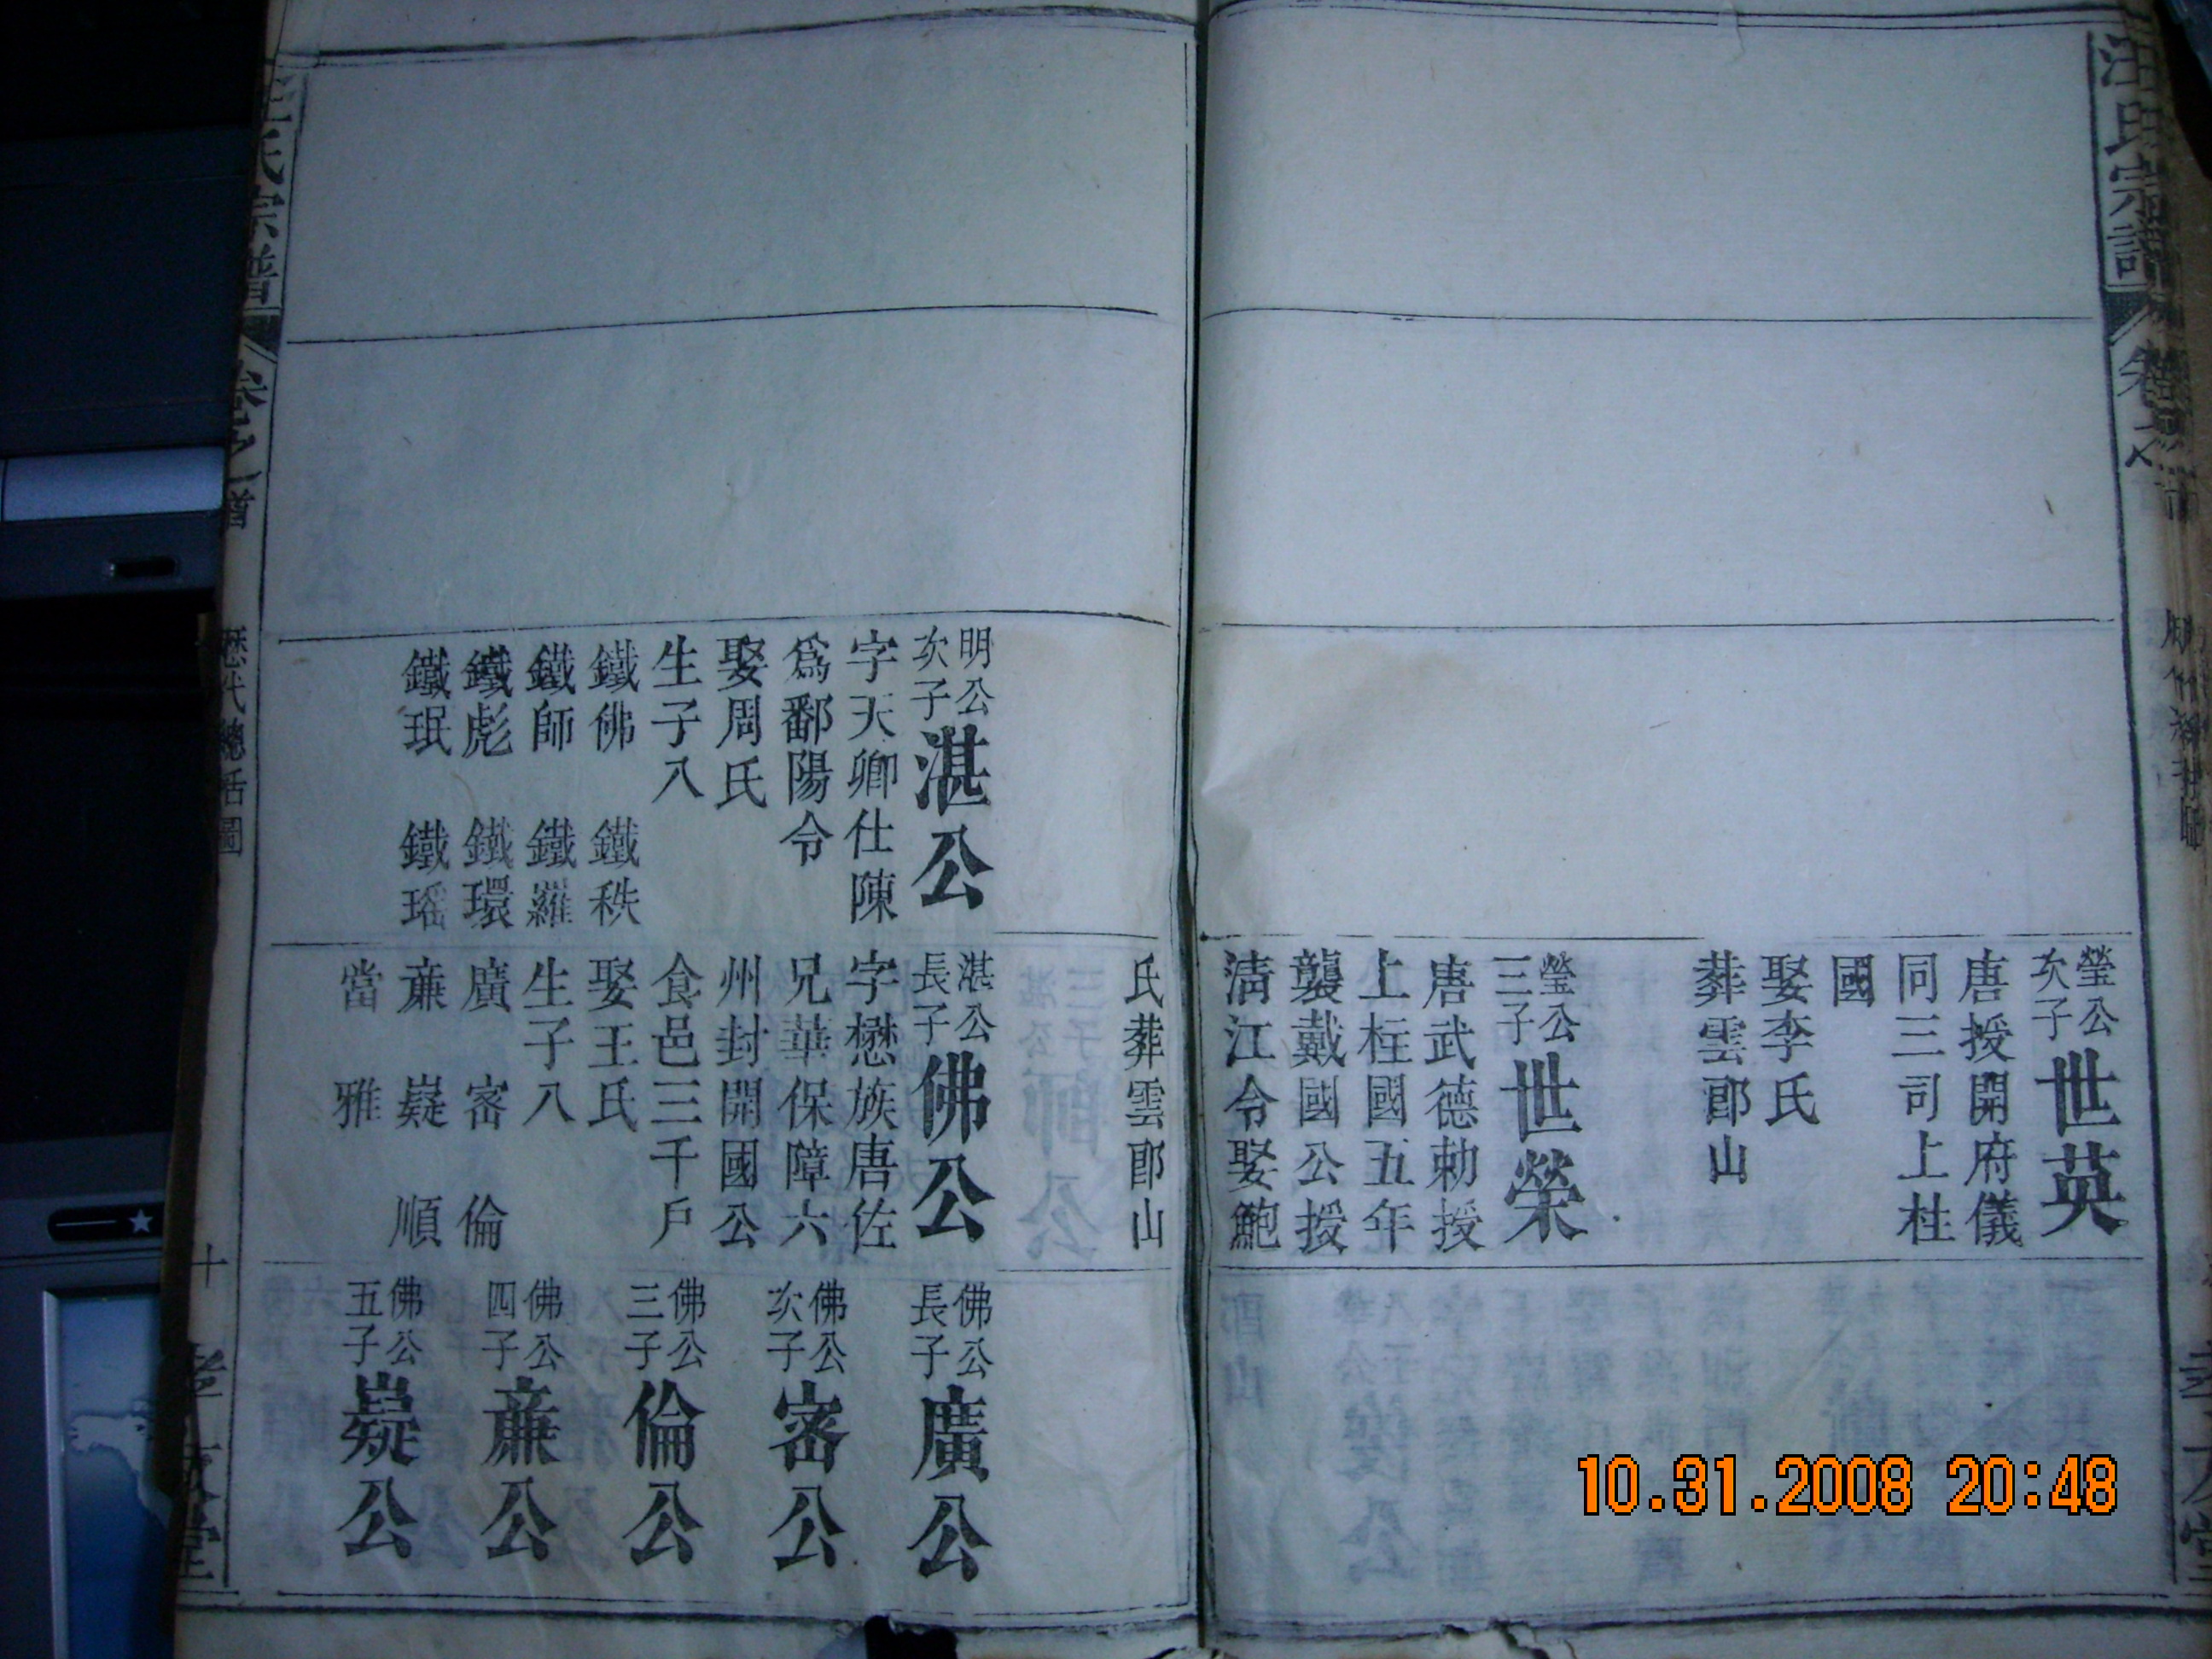 汪氏宗譜
瑩公
次子
世英
唐授開府儀
同三司上柱
國
娶李氏
葬雲郎山
瑩公
三子
世榮
唐武德勅授
上柱國五年
襲戴國公授
清江令娶鮑
氏葬雲郎山
明公
次子
湛公
字天卿仕陳
爲鄱陽令
娶周氏
生子八
鐵佛 鐵秩
鐵師 鐵羅
鐵彪 鐵環
鐵珉 鐵瑶
湛公
長子
佛公
字懋族唐佐
兄華保障六
州封開國公
食邑三千戶
娶王氏
生子八
廣 密 倫
亷 嶷 順
當 雅
佛公
長子
廣公
佛公
次子
密公
佛公
三子
倫公
佛公
四子
亷公
佛公
五子
嶷公
汪氏宗譜
卷之首
歷代總括圖
十
10.31.2008 20:48